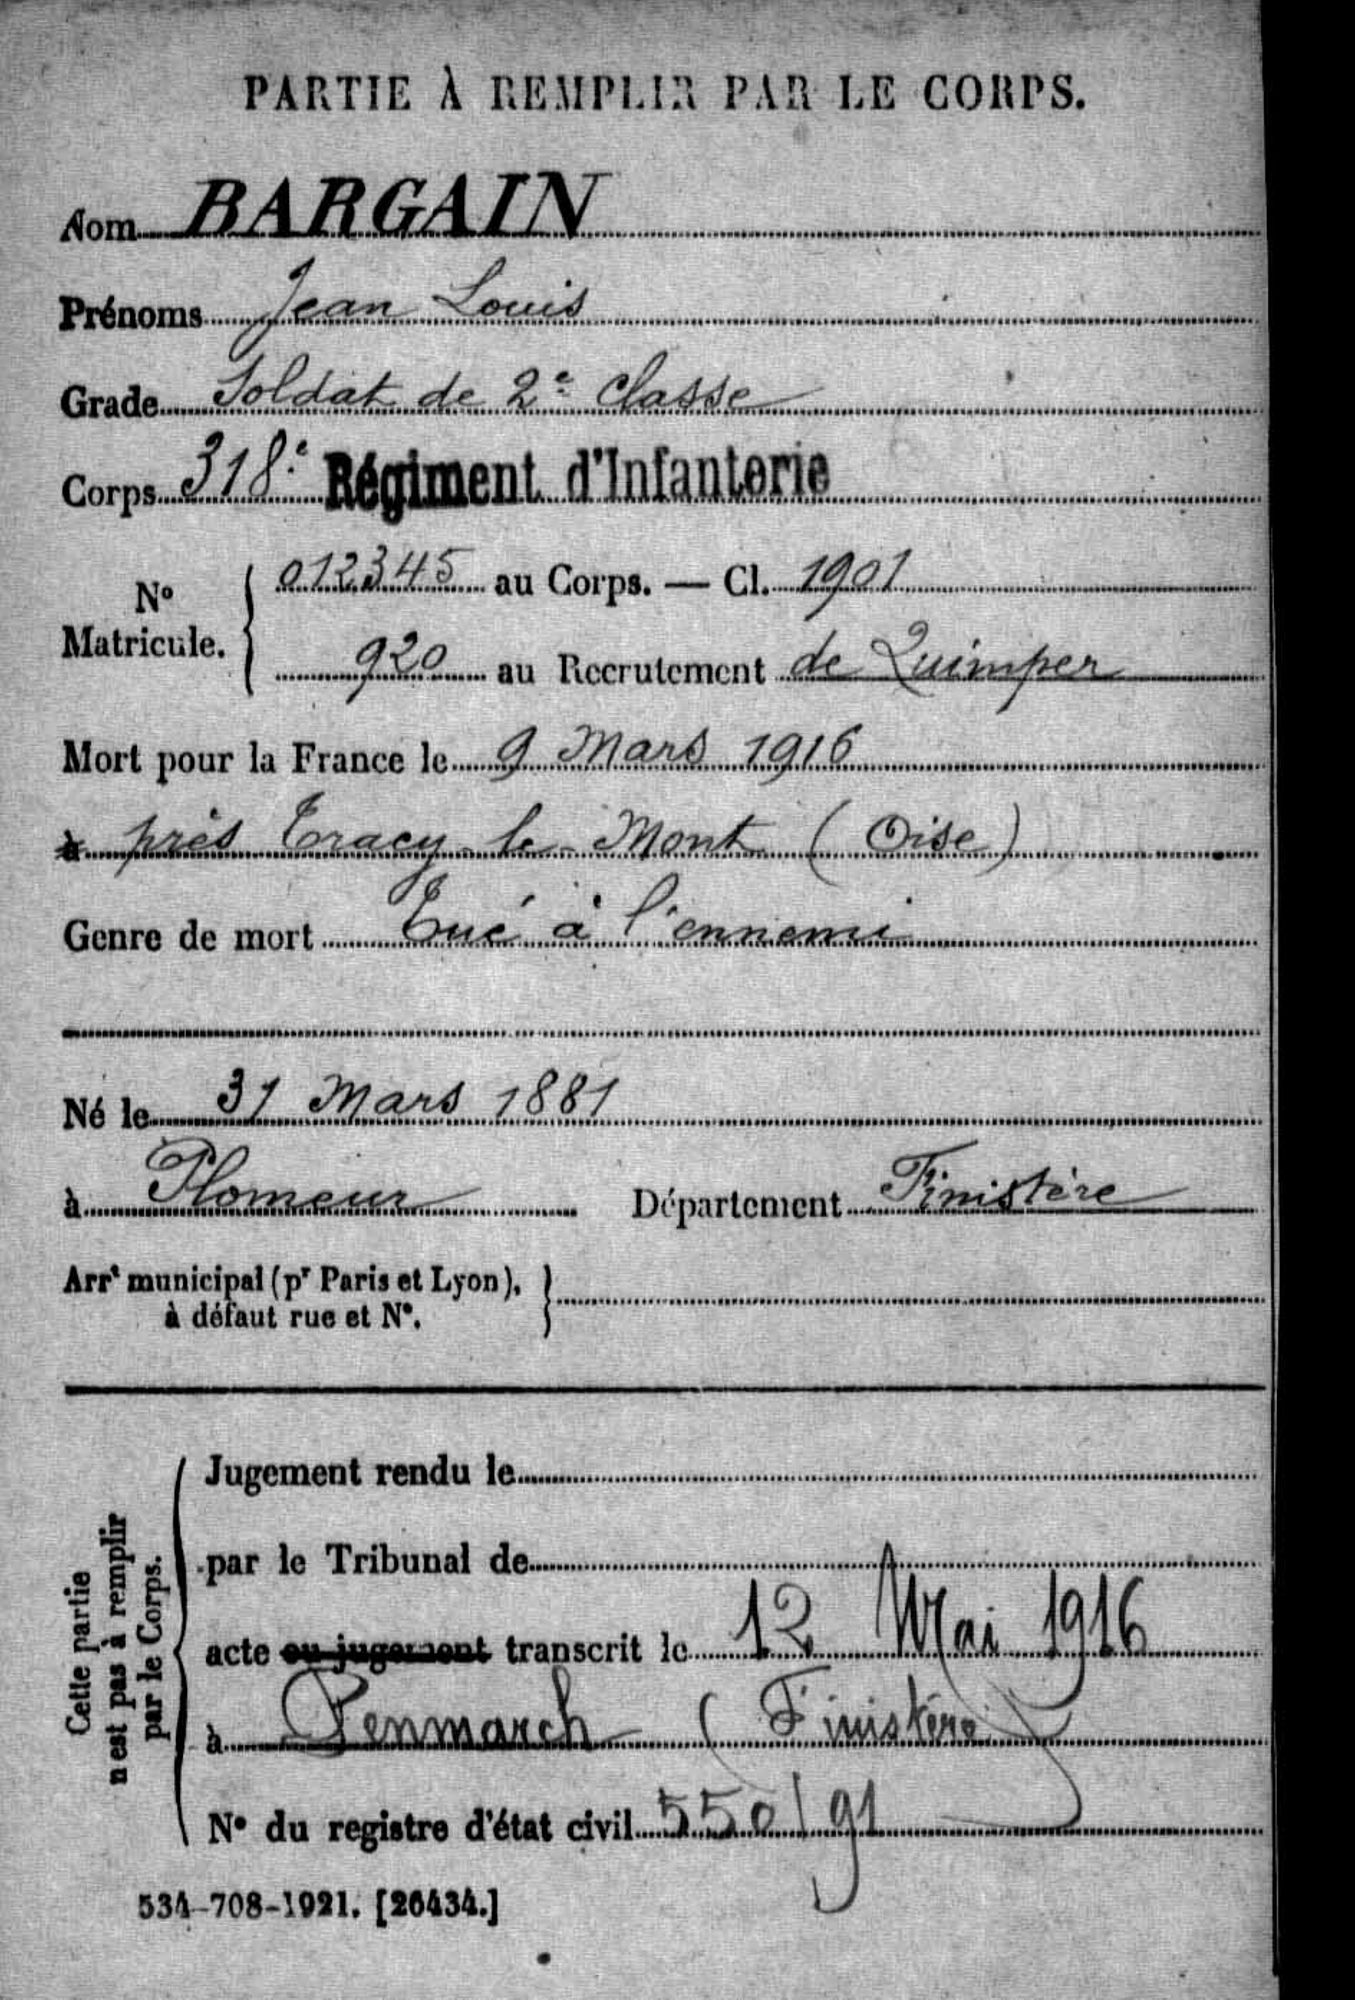 PARTIE À REMPLIR PAR LE CORPS.
Nom BARGAIN
Prénoms Jean Louis
Grade Soldat de 2e classe
Corps 318e Régiment d'Infanterie
No Matricule. { 012345 au Corps. — Cl. 1901
920 au Recrutement de Quimper
Mort pour la France le 9 Mars 1916
à près Tracy-le-Mont (Oise)
Genre de mort Tué à l'ennemi
Né le 31 Mars 1881
à Plomeur Département Finistère
Arrt municipal (pr Paris et Lyon), }
à défaut rue et No.
Cette partie
n'est pas à remplir
par le Corps.
Jugement rendu le
par le Tribunal de
acte ou jugement transcrit le 12 Mai 1916
à Penmarch (Finistère)
No du registre d'état civil 550/91
534-708-1921. [26434.]